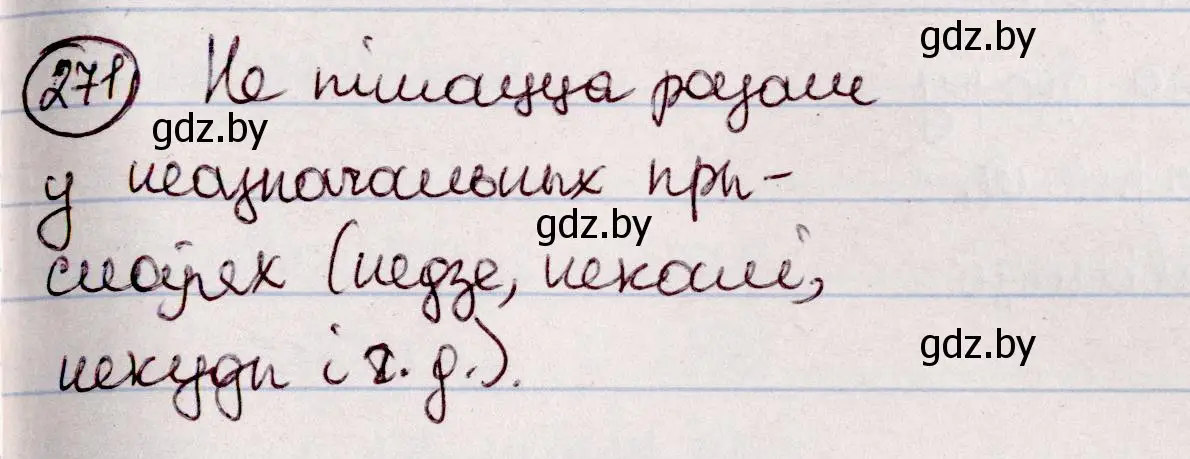 gdz.by
271 Не пішацца разам
gdz.by
у неазначальных пры-
gdz.by
слоўях (недзе, некалі,
gdz.by
некуды і г. д.).